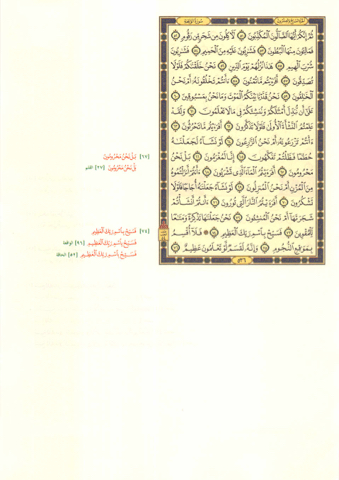 سورة الواقعة
ثم إنكم أيها الضالون المكذبون ٥١ لآكلون من شجر من زقوم ٥٢
فمالئون منها البطون ٥٣ فشاربون عليه من الحميم ٥٤ فشاربون
شرب الهيم ٥٥ هذا نزلهم يوم الدين ٥٦ نحن خلقناكم فلولا
تصدقون ٥٧ أفرأيتم ما تمنون ٥٨ ءأنتم تخلقونه أم نحن
الخالقون ٥٩ نحن قدرنا بينكم الموت وما نحن بمسبوقين ٦٠
على أن نبدل أمثالكم وننشئكم في ما لا تعلمون ٦١ ولقد
علمتم النشأة الأولى فلولا تذكرون ٦٢ أفرأيتم ما تحرثون ٦٣
ءأنتم تزرعونه أم نحن الزارعون ٦٤ لو نشاء لجعلناه
حطاما فظلتم تفكهون ٦٥ إنا لمغرمون ٦٦ بل نحن
محرومون ٦٧ أفرأيتم الماء الذي تشربون ٦٨ ءأنتم أنزلتموه
من المزن أم نحن المنزلون ٦٩ لو نشاء جعلناه أجاجا فلولا
تشكرون ٧٠ أفرأيتم النار التي تورون ٧١ ءأنتم أنشأتم
شجرتها أم نحن المنشئون ٧٢ نحن جعلناها تذكرة ومتاعا
للمقوين ٧٣ فسبح باسم ربك العظيم ٧٤ فلا أقسم
بمواقع النجوم ٧٥ وإنه لقسم لو تعلمون عظيم ٧٦
٥٣٦
[٦٧] بل نحن محرومون
بل نحن محرومون [٢٧] القلم
[٧٤] فسبح باسم ربك العظيم
فسبح باسم ربك العظيم [٩٦] الواقعة
فسبح باسم ربك العظيم [٥٢] الحاقة